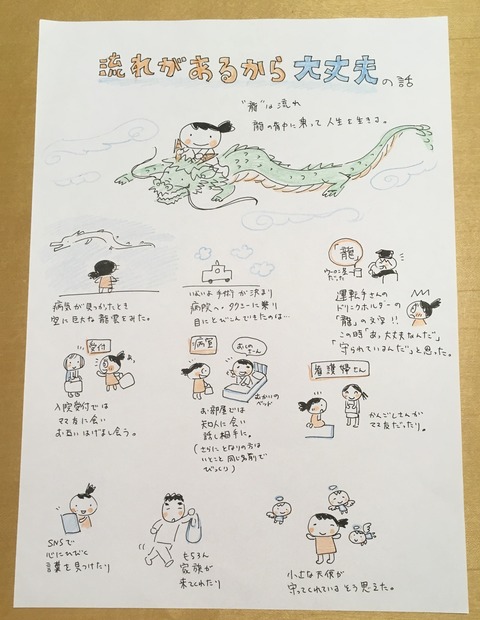 流れがあるから大丈夫の話
"龍"は流れ
龍の背中に乗って人生を生きる。
病気が見つかったとき
空に巨大な龍雲をみた。
いよいよ手術が決まり
病院へ・タクシーに乗り
目にとびこんできたのは…
「龍」
ウーロン茶
だった
運転手さんの
ドリンクホルダーの
「龍」の文字!!
この時「あっ大丈夫なんだ」
「守られているんだ」と思った。
受付
あ。
入院受付では
ママ友に会い
お互いはげまし合う。
病室
むかいの
ベッド
お部屋では
知人に会い
話し相手に。
(さらにとなりの方は
いとこと同じ名前で
びっくり)
看護婦さん
かんごしさんが
ママ友だったり。
SNSで
心にひびく
言葉を見つけたり
もちろん
家族が
来てくれたり
小さな天使が
守ってくれている そう思えた。